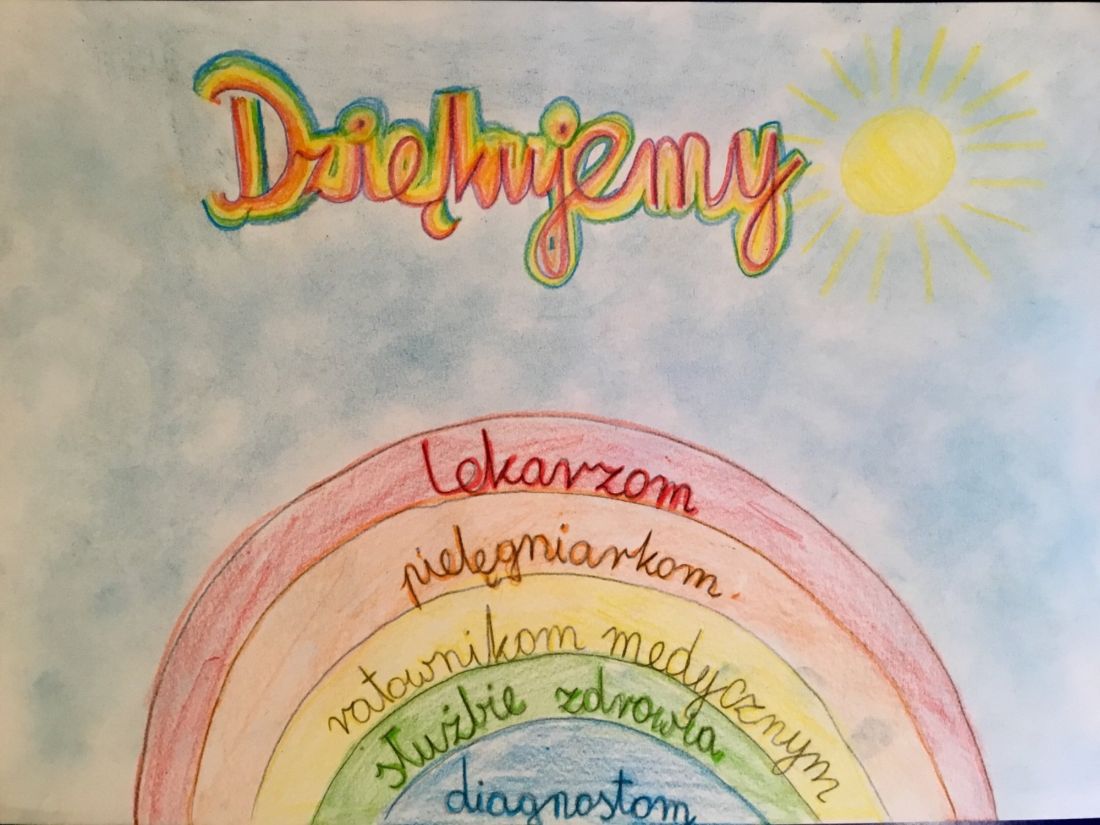 Dziękujemy
lekarzom
pielęgniarkom
ratownikom medycznym
służbie zdrowia
diagnostom